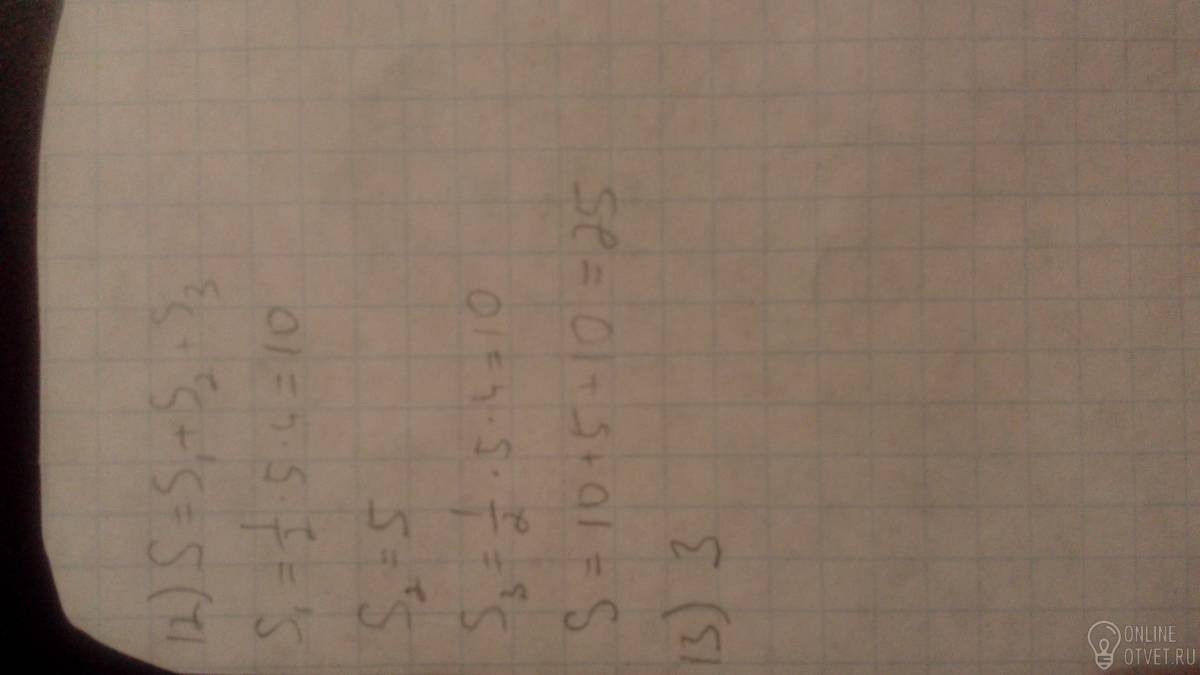 12) S = S₁ + S₂ + S₃
S₁ = 1/2 · 5 · 4 = 10
S₂ = 5
S₃ = 1/2 · 5 · 4 = 10
S = 10 + 5 + 10 = 25
13) 3
ONLINE
OTVET.RU